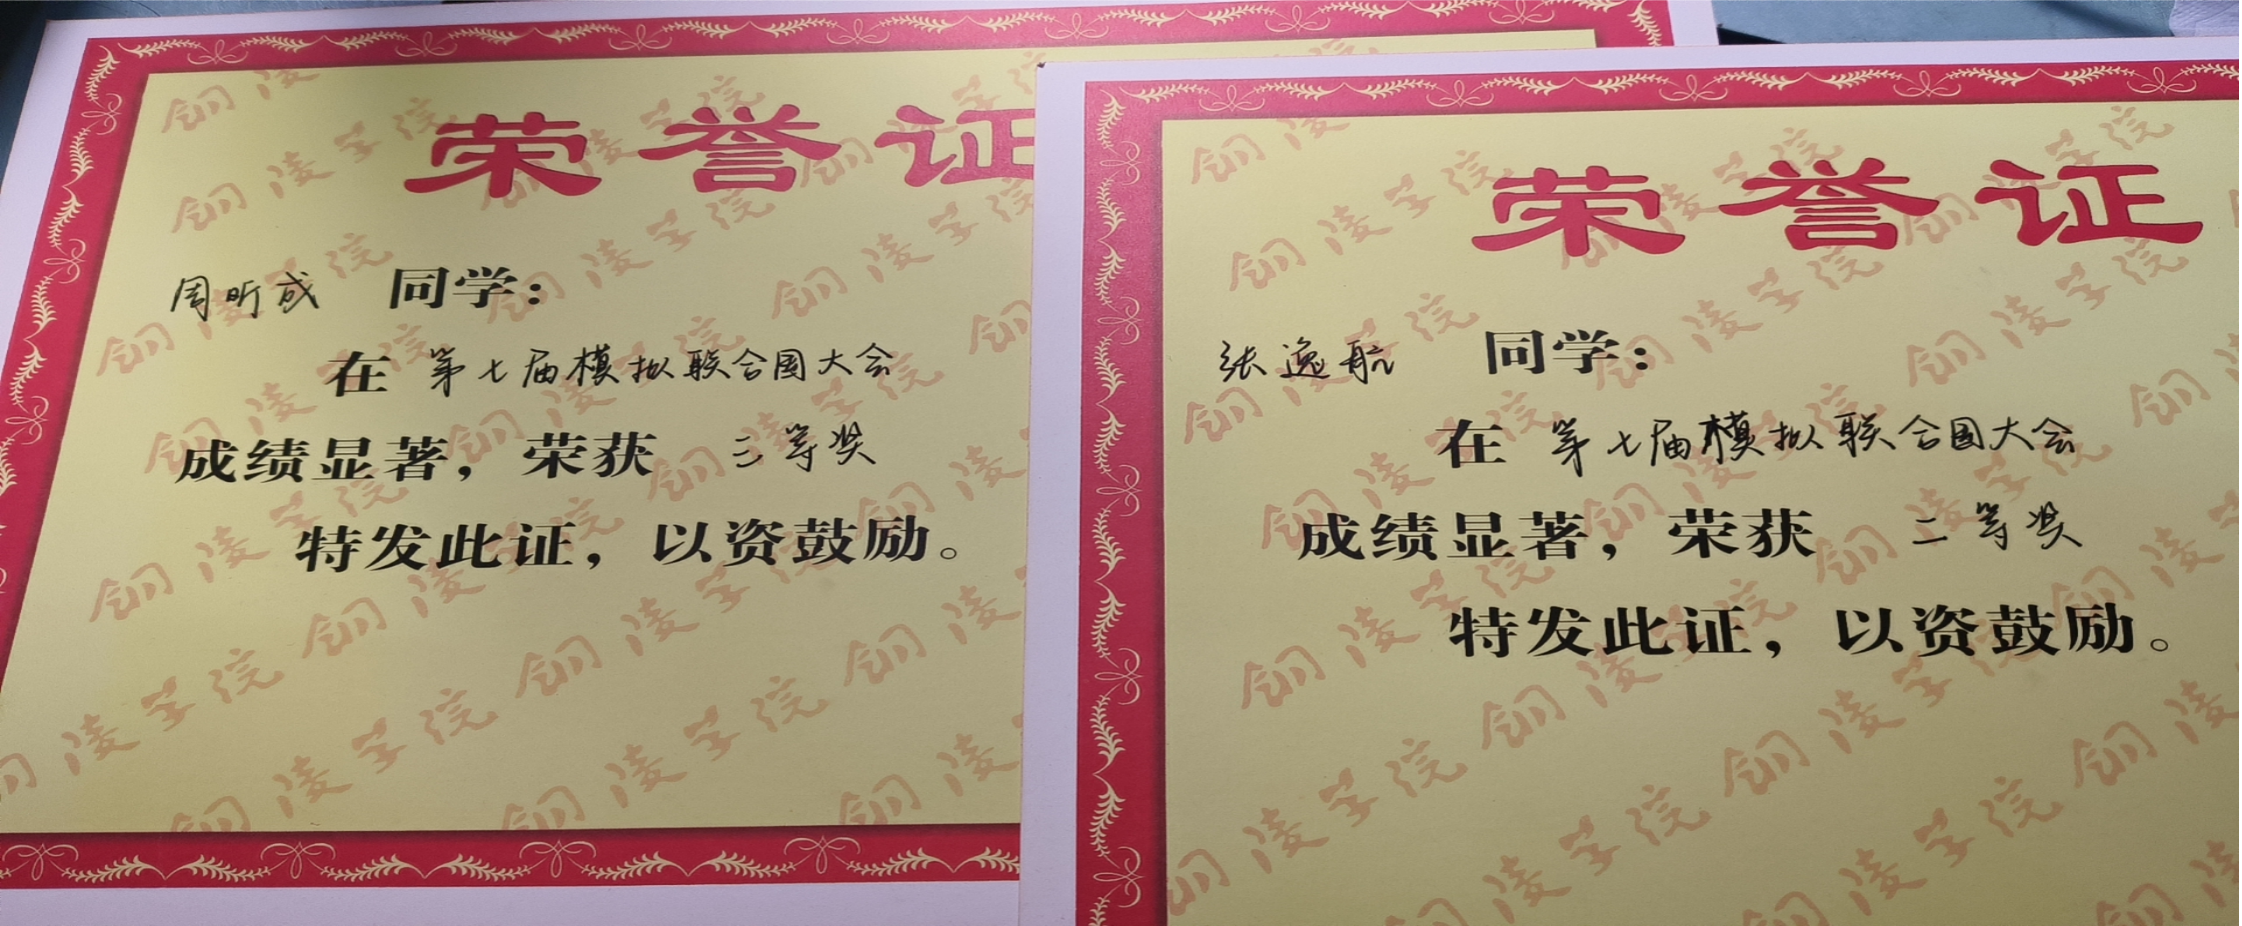 荣誉证
周昕成 同学：
在 第七届模拟联合国大会
成绩显著，荣获 二等奖
特发此证，以资鼓励。
荣誉证
张逸航 同学：
在 第七届模拟联合国大会
成绩显著，荣获 二等奖
特发此证，以资鼓励。
铜陵学院